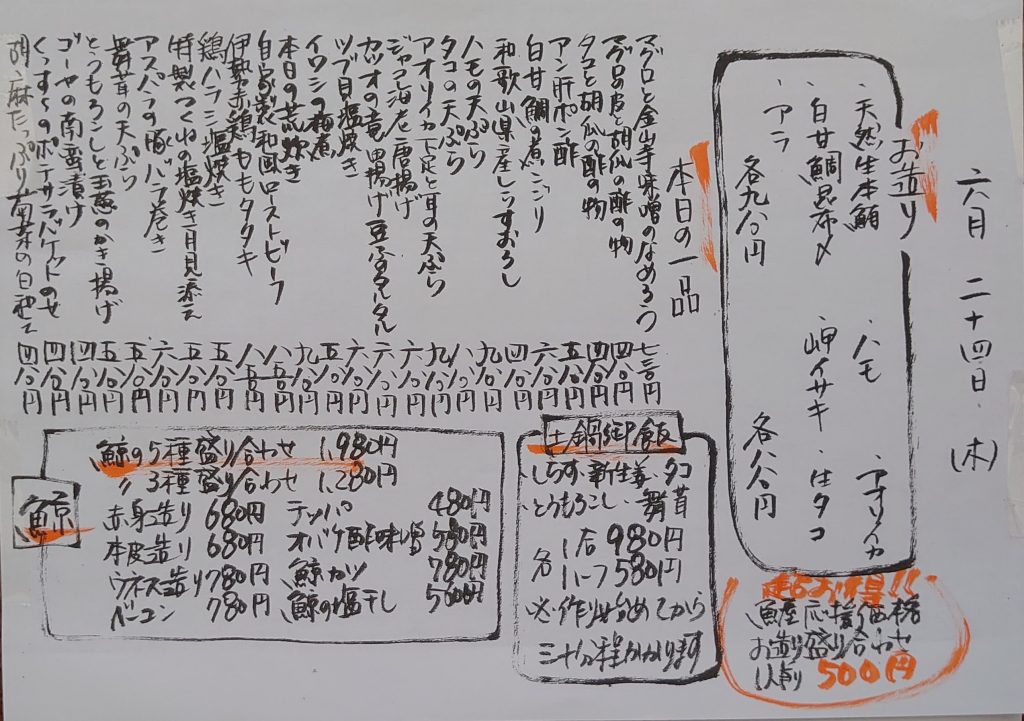 六月二十四日(木)
お造り
・天然生本鮪 ・ハモ ・アオリイカ
・白甘鯛昆布〆 ・岬イサキ ・生タコ
・アラ
各九八〇円 各八八〇円
本日の一品
マグロと金山寺味噌のなめろう 七三〇円
マグロの皮と胡瓜の酢の物 四八〇円
タコと胡瓜の酢の物 四八〇円
アン肝ポン酢 五八〇円
白甘鯛の煮こごり 六八〇円
和歌山県産しらすおろし 四八〇円
ハモの天ぷら 九八〇円
タコの天ぷら 八八〇円
アオリイカ下足と耳の天ぷら 九八〇円
ジャコ海老唐揚げ 六八〇円
カツオの竜田揚げ豆腐タルタル 六八〇円
ツブ貝塩焼き 六八〇円
イワシの梅煮 五八〇円
本日の荒炊き 九八〇円
自家製和風ローストビーフ 八八〇円
伊勢赤鶏ももタタキ 八八〇円
鶏ハラミ塩焼き 五八〇円
特製つくねの塩焼き月見添え 五八〇円
アスパラの豚バラ巻き 六八〇円
舞茸の天ぷら 五八〇円
とうもろこしと玉葱のかき揚げ 五八〇円
ゴーヤの南蛮漬け 四八〇円
くんち〜のポテサラバゲットのせ 四八〇円
胡麻たっぷり菊菜の白和え 四八〇円
土鍋御飯
・しらす・新生姜・タコ
・とうもろこし・舞茸
各 1合 980円
ハーフ 580円
※作り始めてから
三十分程かかります
鯨
鯨の5種盛り合わせ 1,980円
〃 3種盛り合わせ 1,280円
赤身造り 680円
本皮造り 680円
ウネス造り 780円
ベーコン 780円
テッパ 480円
オバケ酢味噌 580円
鯨カツ 780円
鯨の塩干し 580円
超お得!!
魚屋応援価格
お造り盛り合わせ
1人前 500円